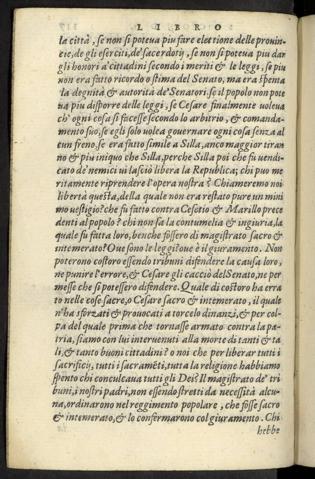 LIBRO
la città, se non si poteua piu fare elettione delle prouin-
tie, de gli eserciti, de' sacerdoty, se non si poteua piu dar
gli honori a' cittadini secondo i meriti & le leggi, se piu
non era fatto ricordo o stima del Senato, ma era spenta
la degnità & autorità de' Senatori. se il popolo non pote
ua piu disporre delle leggi, se Cesare finalmente uoleua
ch' ogni cosa si facesse secondo lo arbitrio, & comanda-
mento suo, se egli solo uolea gouernare ogni cosa senza al
cun freno. se era fatto simile a Silla, anco maggior tiran
no & piu iniquo che Silla, perche Silla poi che fu uendi-
cato de' nemici ui lasciò libera la Republica; chi puo me
ritamente riprendere l'opera nostra? Chiameremo noi
libertà questa, della quale non era restato pure un mini
mo uestigio? che fu fatto contra Cesetio & Marillo prece
denti al popolo? chi non sa la contumelia & ingiuria, la
quale fu fatta loro, benche fossero di magistrato sacro &
intemerato? Oue sono le leggi? oue è il giuramento. Non
poterono costoro essendo tribuni difendere la causa loro,
ne punire l'errore, & Cesare gli cacciò del Senato, ne per
messe che si potessero difendere. Quale di costoro ha erra
to nelle cose sacre, o Cesare sacro & intemerato, il quale
n'ha sforzati & prouocati a torcelo dinanzi, & per col-
pa del quale prima che tornasse armato contra la pa-
tria, siamo con lui interuenuti alla morte di tanti & ta
li, & tanto buoni cittadini? o noi che per liberar tutti i
sacrificÿ, tutti i sacramēti, tutta la religione habbiamo
spento chi conculcaua tutti gli Dei? Il magistrato de' tri
buni, i nostri padri, non essendo stretti da necessità alcu-
na, ordinarono nel reggimento popolare, che fosse sacro
& intemerato, & lo confermarono col giuramento. Chi
hebbe